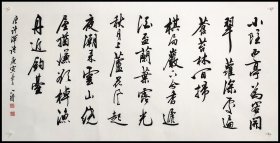 小隱西亭為客開
翠蘿深處遍
蒼苔林間掃
棋局巖下分泉遞
酒盃蘭葉露光
秋月上蘆花風起
夜潮来雲山繞
屋猶嫌淺棹漁
舟近釣臺
唐許渾詩庚寅